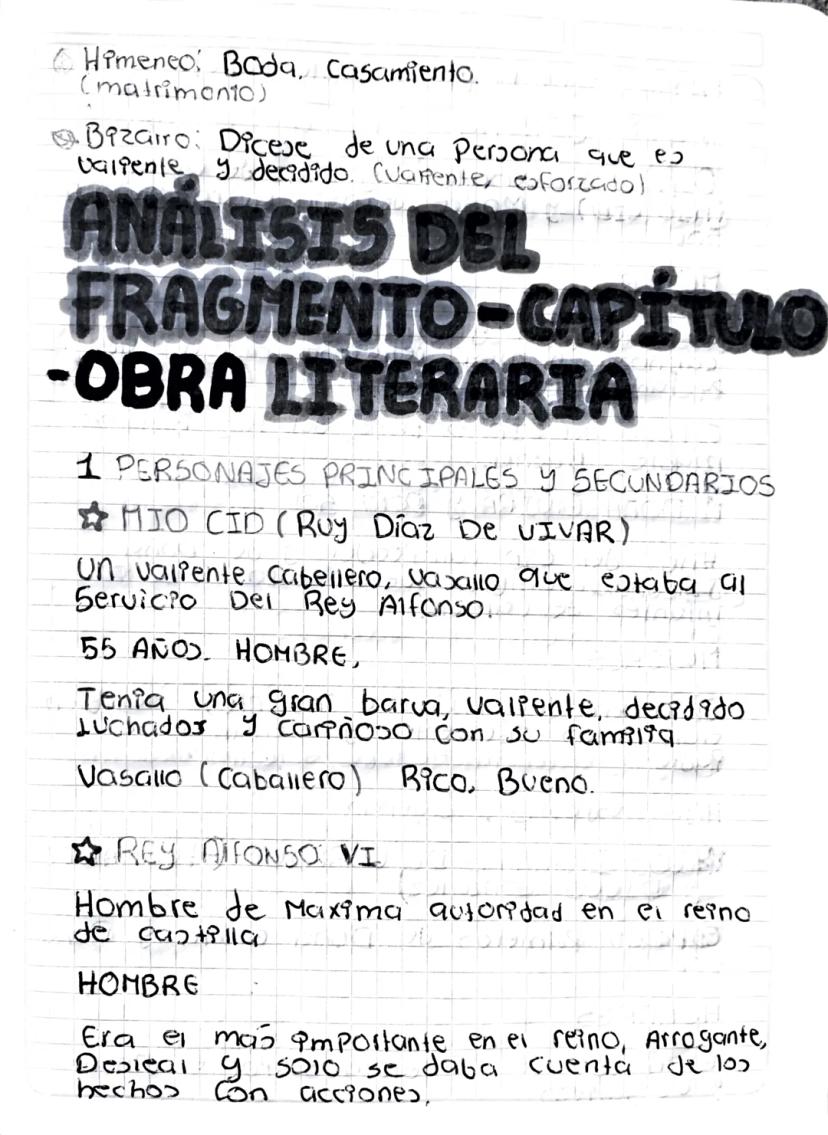 Himeneo: Boda, Casamiento.
(matrimonio)
Bizairo: Dícese de una Persona que es
valiente y decidido. (valiente, esforzado)
ANÁLISIS DEL
FRAGMENTO-CAPÍTULO
-OBRA LITERARIA
1 PERSONAJES PRINCIPALES Y SECUNDARIOS
☆ MIO CID (Ruy Díaz De VIVAR)
Un valiente Cabellero, vasallo que estaba al
Servicio Del Rey Alfonso.
55 AÑOS. HOMBRE,
Tenia una gran barva, valiente, decidido
luchador y cariñoso con su familia
Vasallo (Caballero) Rico, Bueno.
☆ REY AlFONSO VI
Hombre de Maxima autoridad en el reino
de castilla
HOMBRE
Era el mas importante en el reino, Arrogante,
Desleal y solo se daba cuenta de los
hechos con acciones.